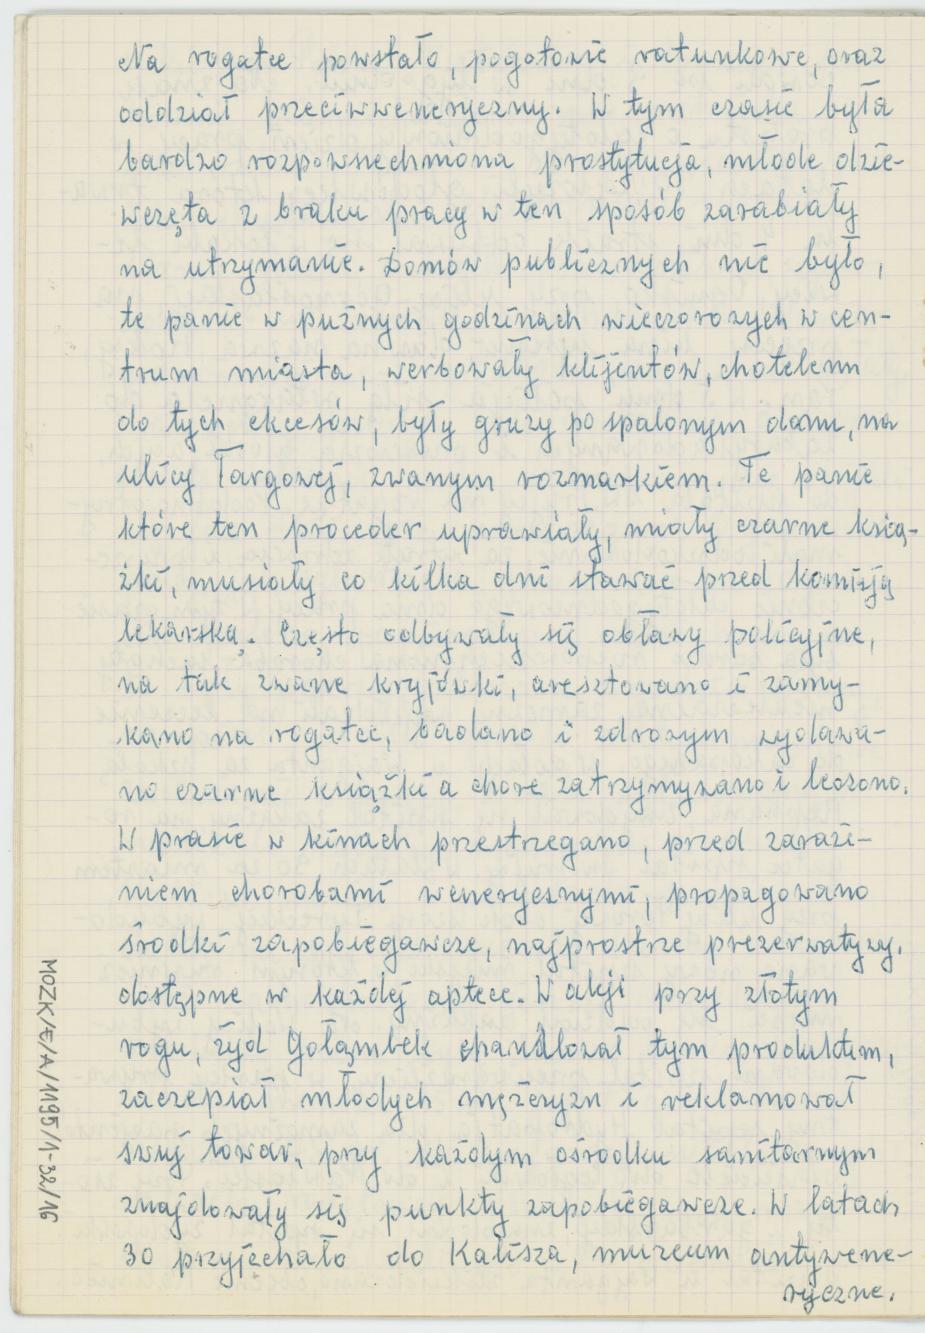 Na rogatce powstało, pogotowie ratunkowe, oraz
oddział przeciwweneryczny. W tym czasie była
bardzo rozpowszechniona prostytucja, młode dzie-
wczęta z braku pracy w ten sposób zarabiały
na utrzymanie. Domów publicznych nie było,
te panie w puźnych godzinach wieczorowych w cen-
trum miasta, werbowały klijentów, chotelem
do tych ekcesów, były gruzy po spalonym domu, na
ulicy Targowej, zwanym rozmarkiem. Te panie
które ten proceder uprawiały, miały czarne ksią-
żki, musiały co kilka dni stawać przed komisją
lekarską. Często odbywały się obławy policyjne,
na tak zwane kryjówki, aresztowano i zamy-
kano na rogatce, badano i zdrowym wydawa-
no czarne książki a chore zatrzymywano i leczono.
W prasie w kinach przestrzegano, przed zaraże-
niem chorobami wenerycznymi, propagowano
środki zapobiegawcze, najprostrze prezerwatywy,
dostępne w każdej aptece. W aleji przy złotym
rogu, żyd Gołąmbek chandlował tym produktem,
zaczepiał młodych męźczyzn i reklamował
swuj towar, przy każdym ośrodku sanitarnym
znajdowały się punkty zapobiegawcze. W latach
30 przyjechało do Kalisza, muzeum antywene-
ryczne.
MOZK/E/A/1195/1-32/16